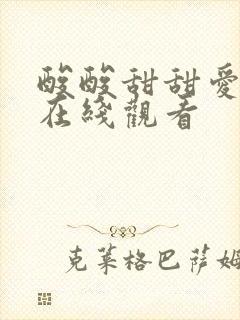 酸酸甜甜爱
在綫觀看
克莱格巴萨姆